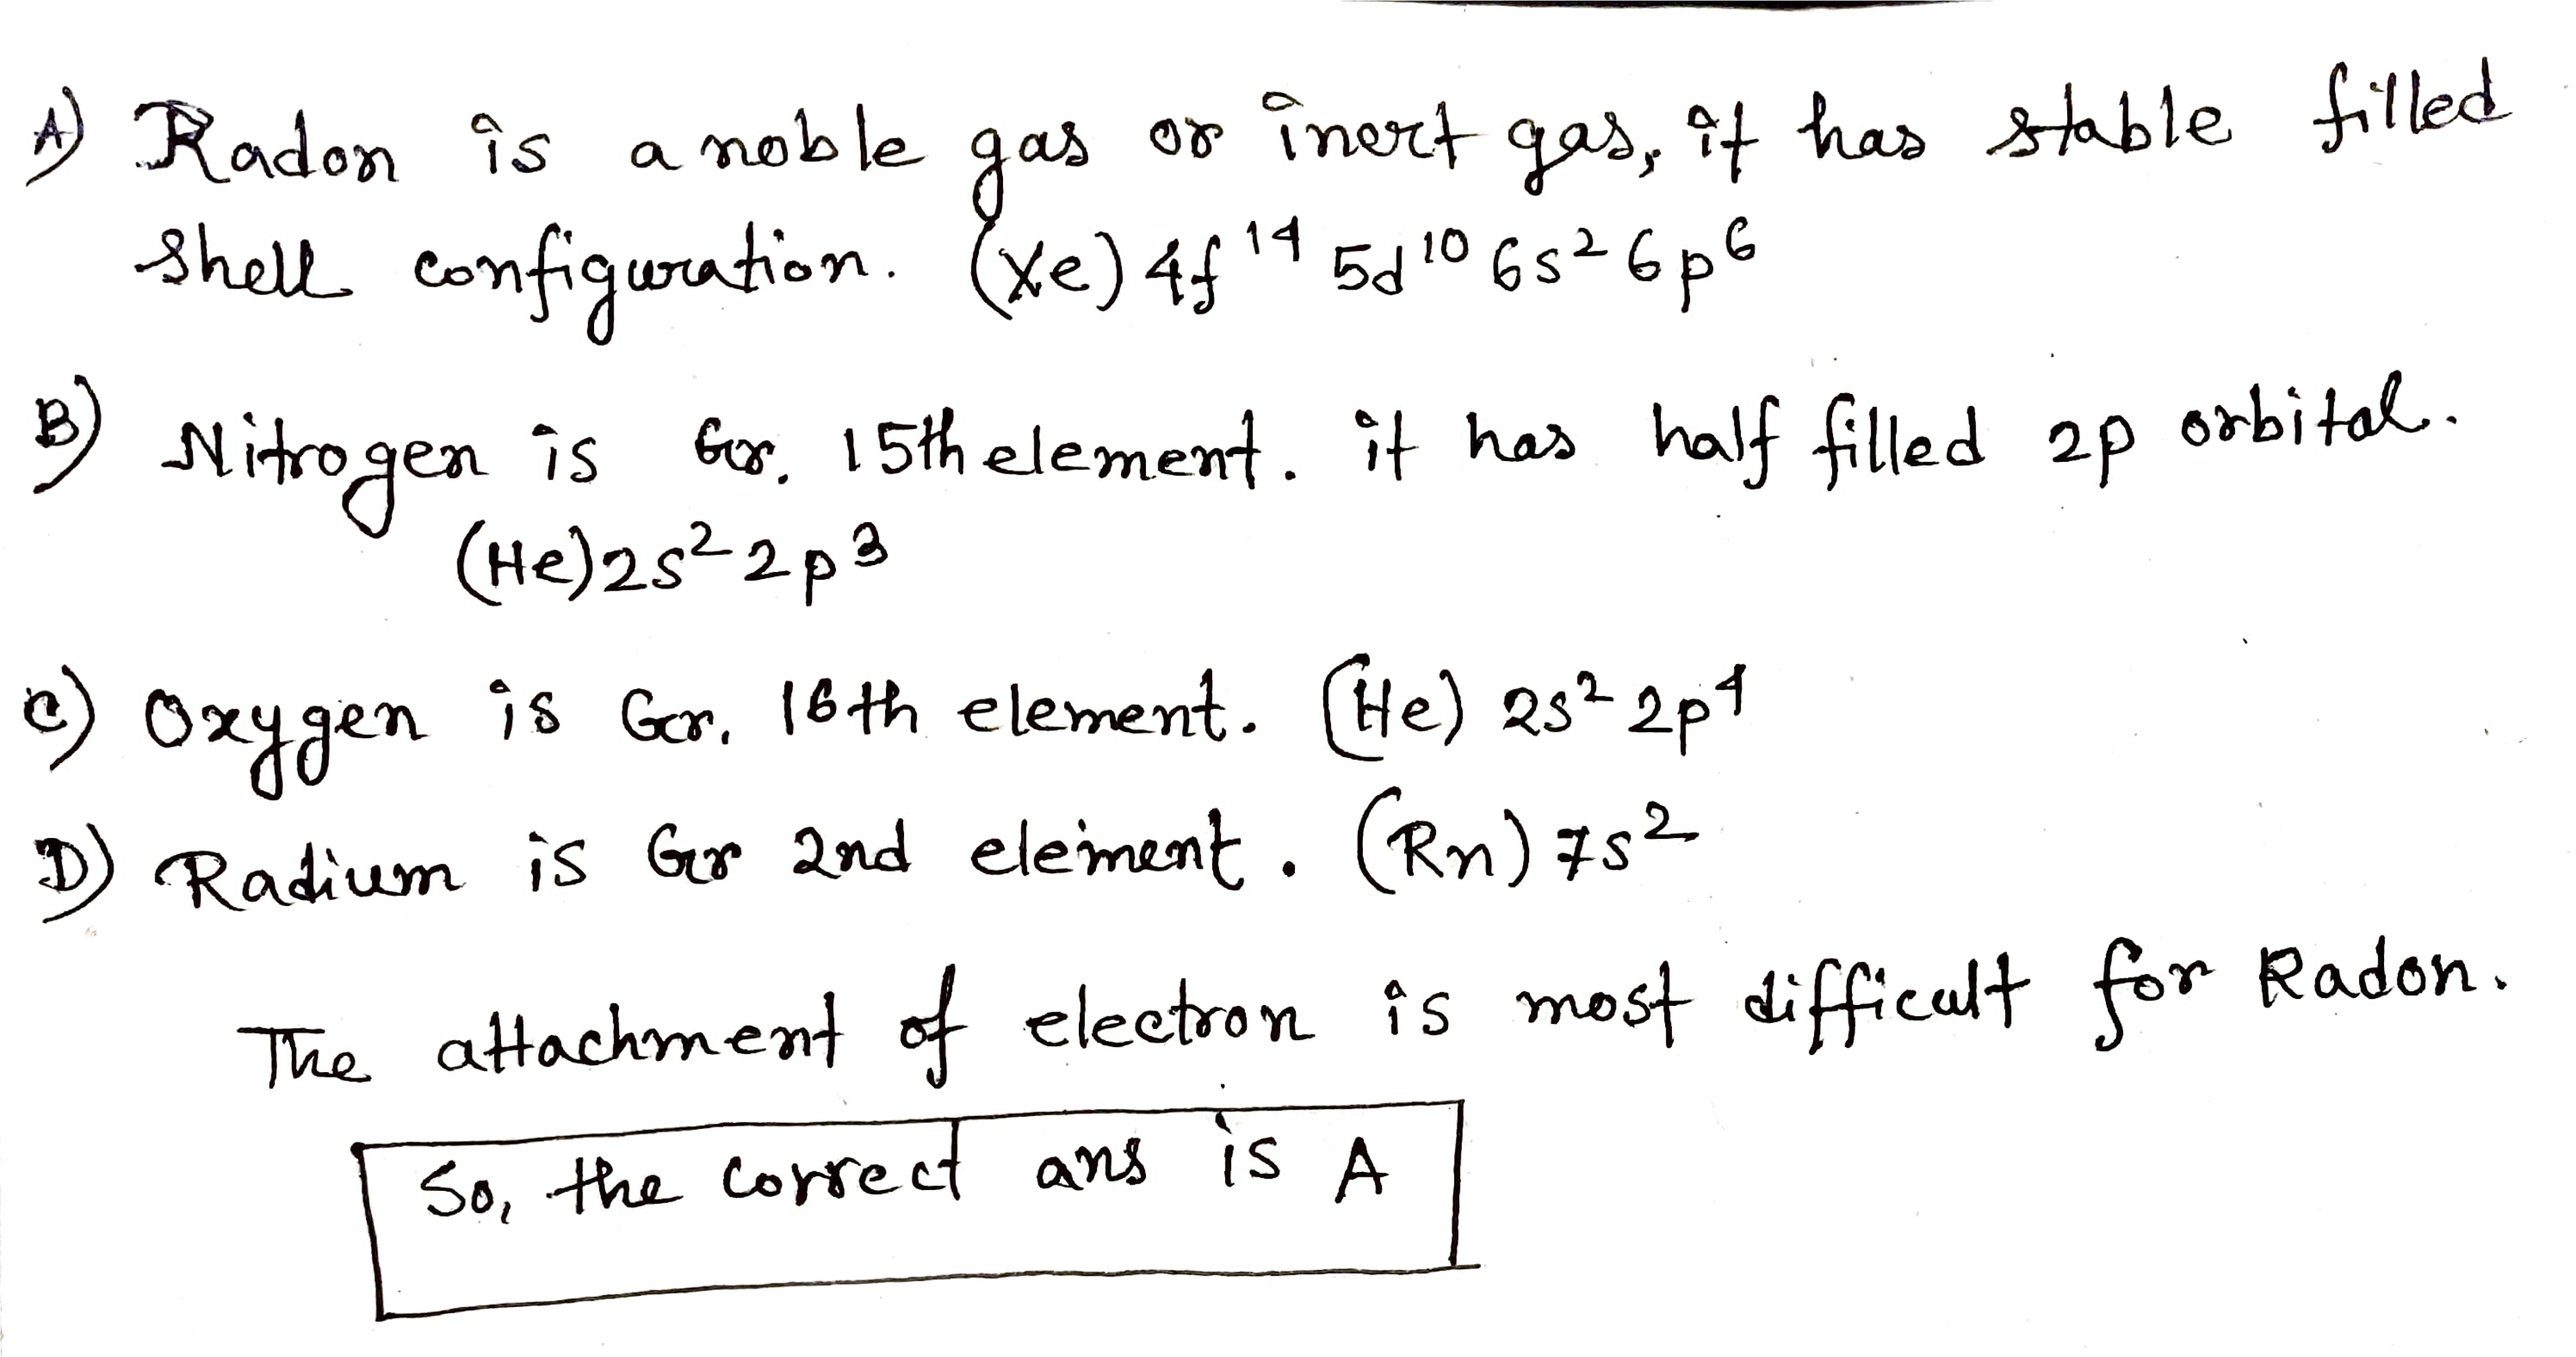 A) Radon is a noble gas or inert gas, it has stable filled
shell configuration. (Xe) 4f¹⁴ 5d¹⁰ 6s² 6p⁶
B) Nitrogen is Gr. 15th element. it has half filled 2p orbital.
(He) 2s² 2p³
C) Oxygen is Gr. 16th element. (He) 2s² 2p⁴
D) Radium is Gr 2nd element. (Rn) 7s²
The attachment of electron is most difficult for Radon.
So, the correct ans is A